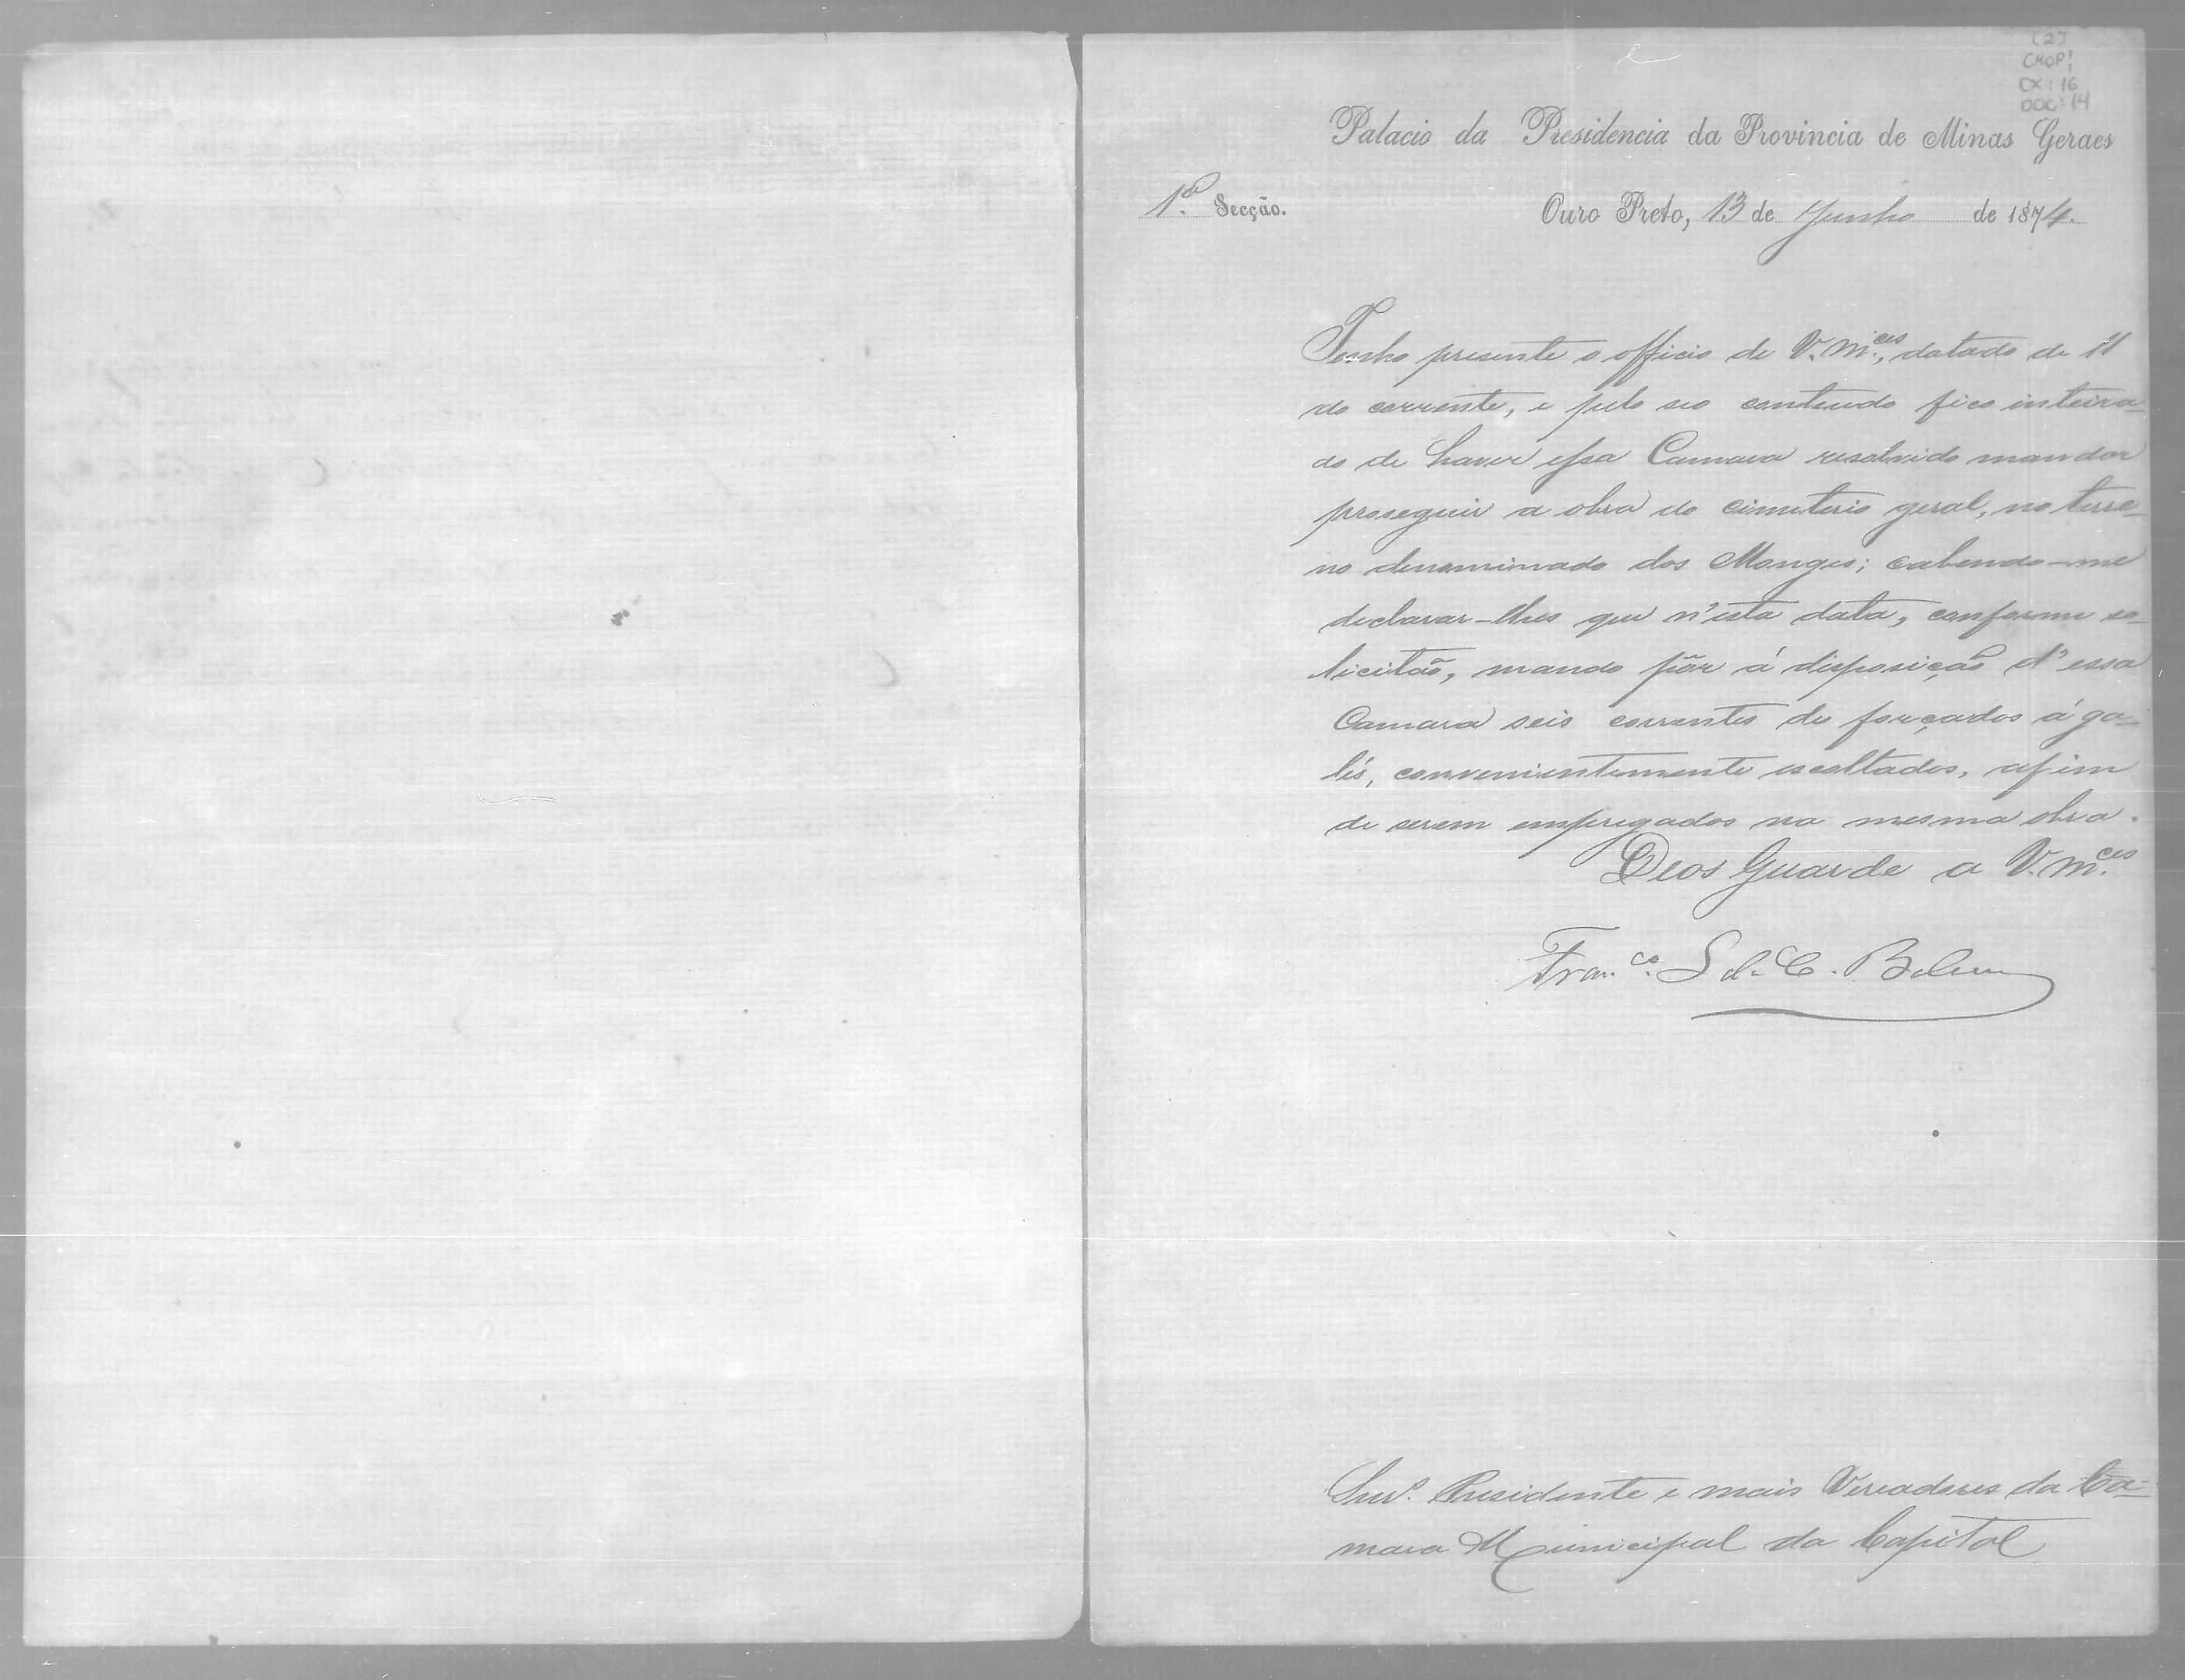 [2]
CMOP!
CX: 16
DOC: 14
Palacio da Presidencia da Provincia de Minas Geraes
1ª Secção.
Ouro Preto, 13 de Junho de 1874.
Tenho presente o officio de V. M.ces, datado de 11
do corrente, e pelo seo conteudo fico inteira-
do de haver essa Camara resolvido mandar
proseguir a obra do cimeterio geral, no terre-
no denominado dos Monges; cabendo-me
declarar-lhes que n'esta data, conforme so-
licitão, mando pôr á disposição d'essa
Camara seis correntes de forçados á ga-
lés, convenientemente escoltados, afim
de serem empregados na mesma obra.
Deos Guarde a V. M.ces
Fran.co L de C. Belem
Snrs. Presidente e mais Vereadores da Ca-
mara Municipal da Capital